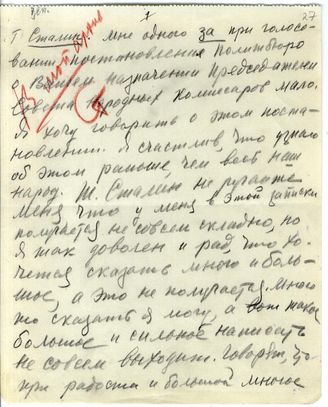 1
27
Т Сталин, мне одного за при голосо-
вании постановления Политбюро
о Вашем назначении Председателем
Совета Народных Комиссаров мало.
Я хочу говорить о этом поста-
новлении. Я счастлив, что узнаю
об этом раньше, чем весь наш
народ. Т. Сталин не ругайте
меня что у меня в этой записки
получается не совсем складно, но
я так доволен и рад, что хо-
чется сказать много и боль-
шое, а это не получается. Много
то сказать я могу, а вот такое
большое и сильное написать
не совсем выходит. Говорят, что
при радости и большой многое